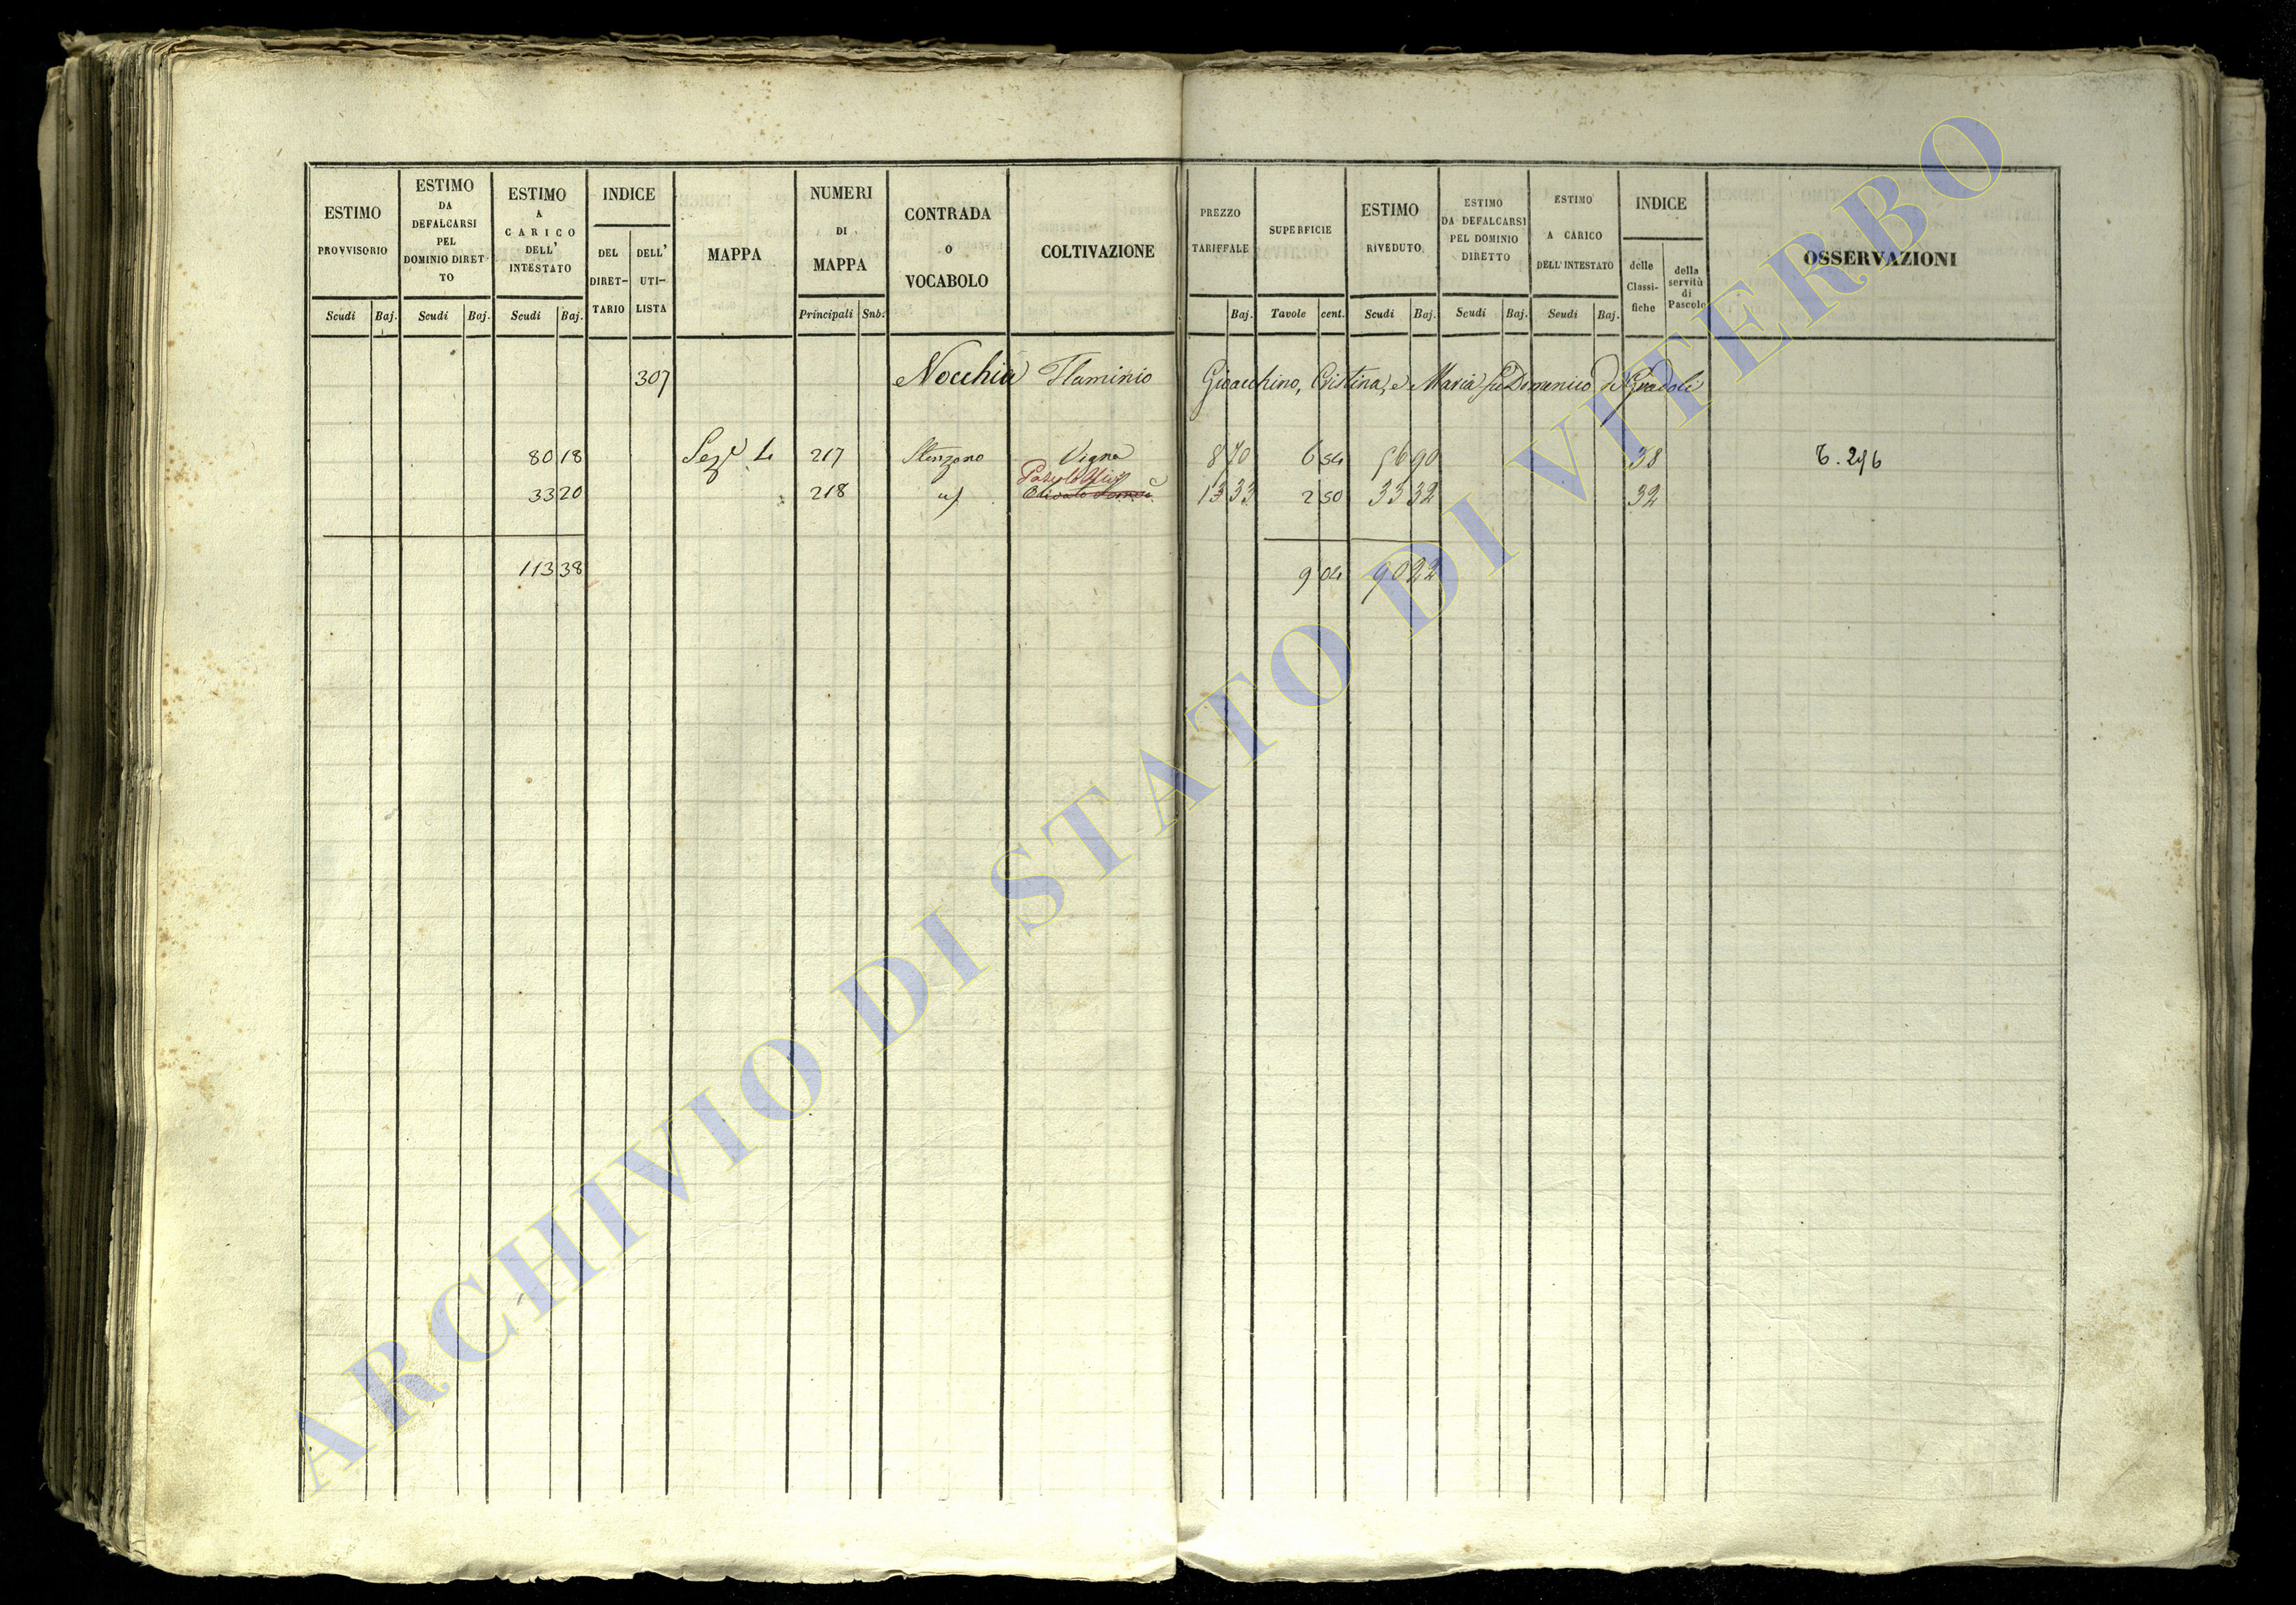 ESTIMO PROVVISORIO Scudi Baj.
ESTIMO DA DEFALCARSI PEL DOMINIO DIRETTO Scudi Baj.
ESTIMO A CARICO DELL' INTESTATO Scudi Baj.
INDICE DEL DIRET-TARIO DELL' UTI-LISTA
MAPPA
NUMERI DI MAPPA Principali Snb.
CONTRADA O VOCABOLO
COLTIVAZIONE
PREZZO TARIFFALE Baj.
SUPERFICIE Tavole cent.
ESTIMO RIVEDUTO Scudi Baj.
ESTIMO DA DEFALCARSI PEL DOMINIO DIRETTO Scudi Baj.
ESTIMO A CARICO DELL'INTESTATO Scudi Baj.
INDICE delle Classi-fiche della servitù di Pascolo
OSSERVAZIONI
307 Nocchia Flaminio Gioacchino, Cristina, e Maria fu Domenico di Gradoli
80 18 Sez. 217 Vigna 8 70 6 54 56 90 38 T. 296
33 20 218 id 13 33 2 50 33 32 32
113 38 9 04 90 22
ARCHIVIO DI STATO DI VITERBO